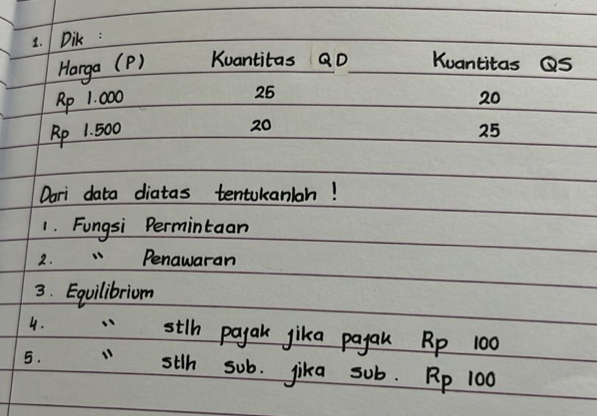 1. Dik :
Harga (P) Kuantitas QD Kuantitas QS
Rp 1.000 25 20
Rp 1.500 20 25
Dari data diatas tentukanlah !
1. Fungsi Permintaan
2. " Penawaran
3. Equilibrium
4. " stlh pajak jika pajak Rp 100
5. " stlh sub. jika sub. Rp 100